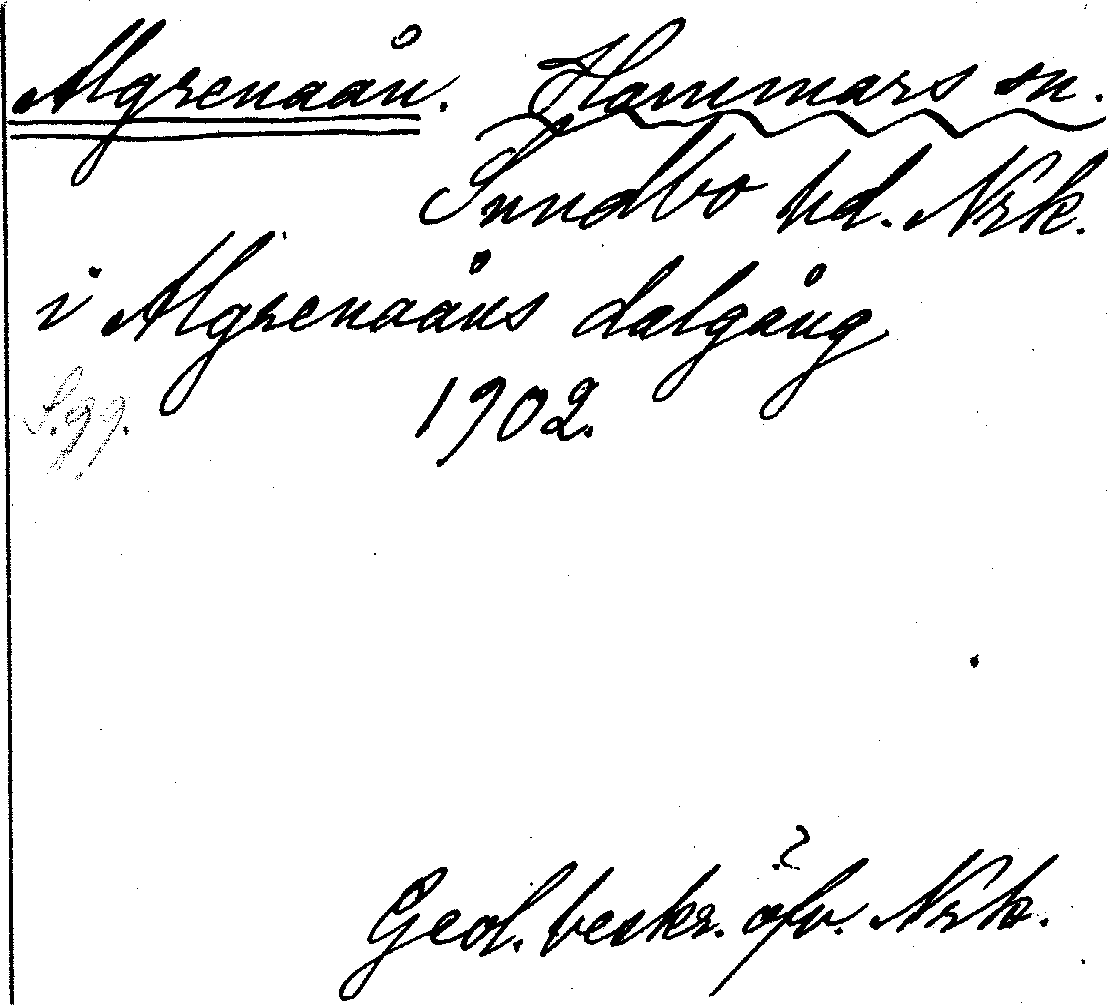 Algrenaån. Hammars sn.
Sundbo hd. Nrk.
i Algrenaåns dalgång
1902.
S. 99.
Geol. beskr. öfv. Nrk.